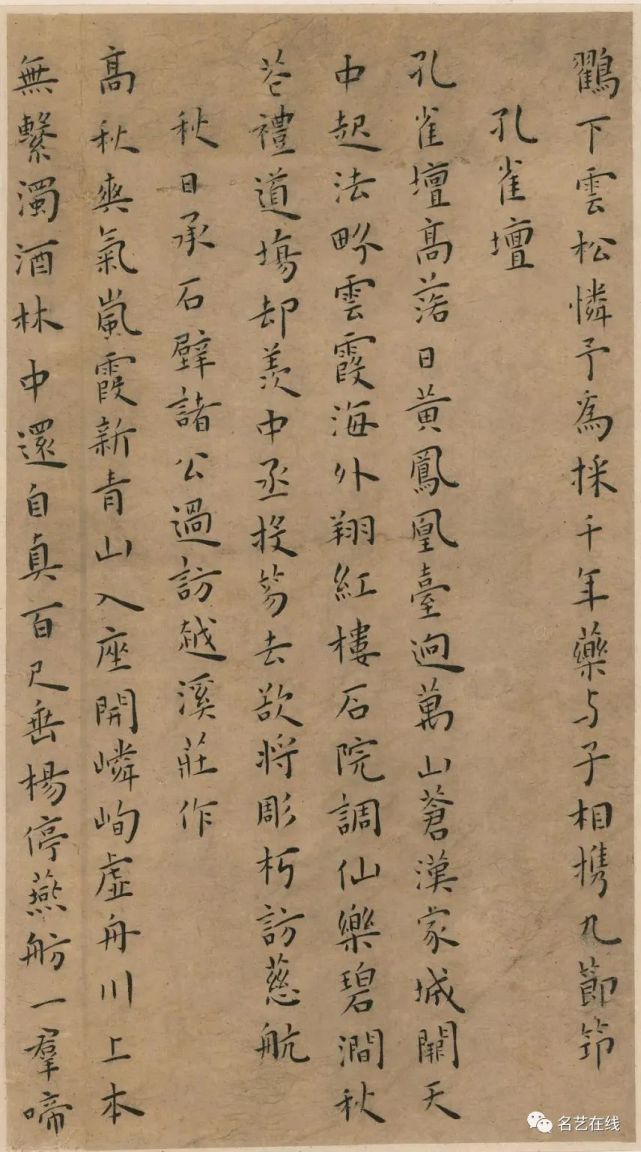 鸛下雲松憐予爲採千年藥与子相携九節筇
孔雀壇
孔雀壇高落日黃鳳凰臺迥萬山蒼漢家城闕天
中起法界雲霞海外翔紅樓石院調仙樂碧澗秋
花禮道場却羨中丞投笏去欲將彫朽訪慈航
秋日承石壁諸公過訪越溪莊作
高秋爽氣嵐霞新青山入座開嶙峋虛舟川上本
無繫濁酒林中還自真百尺垂楊停燕舫一羣啼
名艺在线